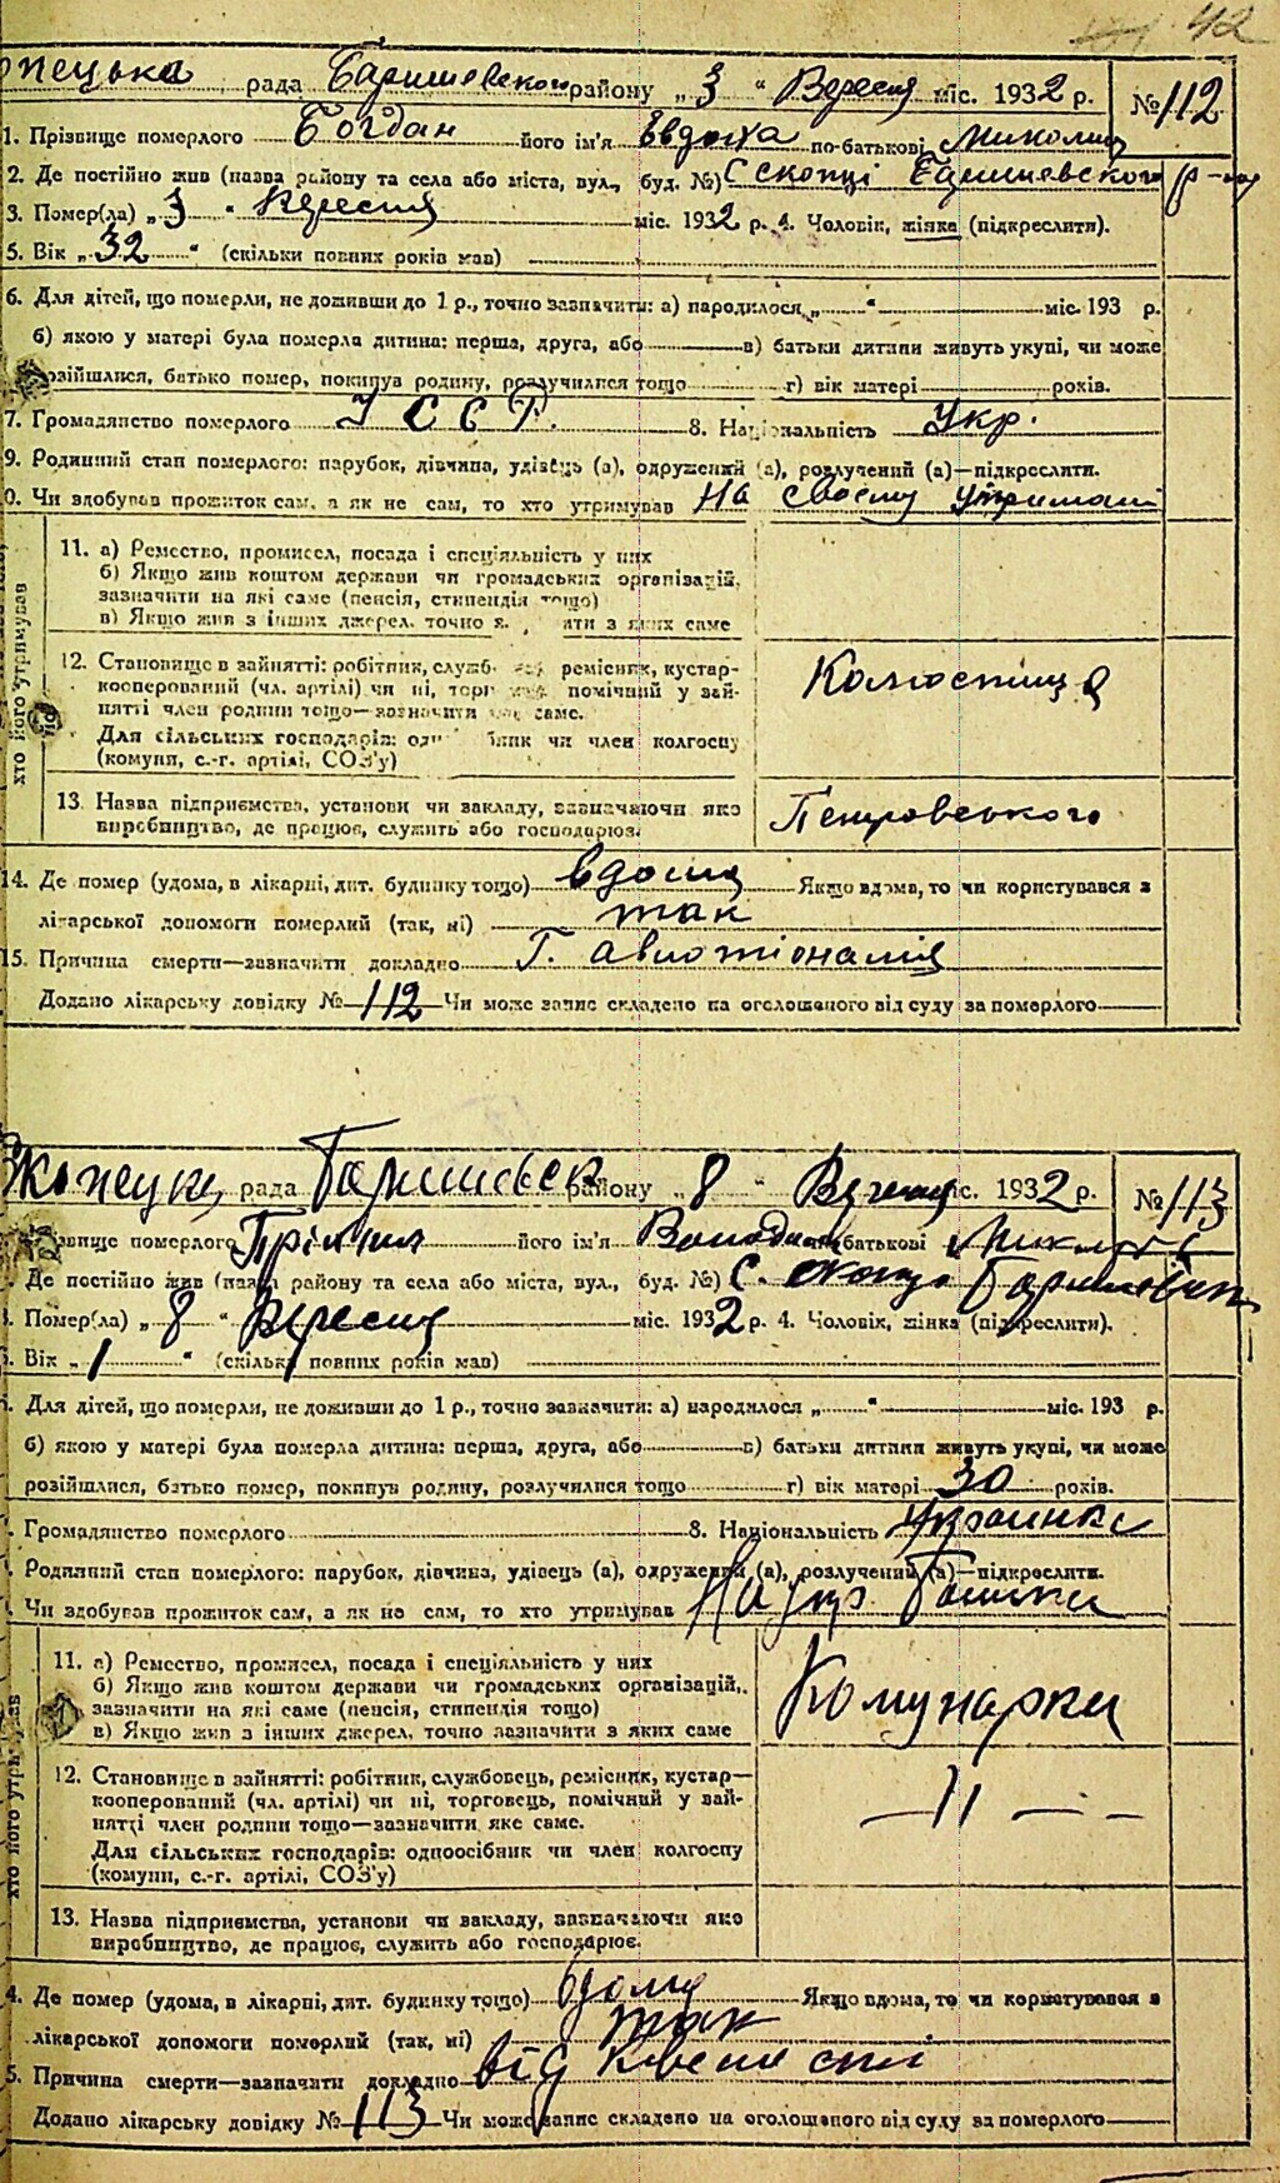 42
рада Баришевского району „ 3 “ Вересня міс. 1932 р. № 112
1. Прізвище померлого Богдан його ім'я Евдоха по-батькові
2. Де постійно жив (назва району та села або міста, вул., буд. №) С Скопці Баришевского р-ну
3. Помер(ла) „ 3 “ Вересня міс. 1932 р. 4. Чоловік, жінка (підкреслити).
5. Вік „ 32 “ (скільки повних років мав)
6. Для дітей, що померли, не доживши до 1 р., точно зазначити: а) народилося „ “ міс. 193 р.
б) якою у матері була померла дитина: перша, друга, або в) батьки дитини живуть укупі, чи може
розійшлися, батько помер, покинув родину, розлучилися тощо г) вік матері років.
7. Громадянство померлого У С С Р. 8. Національність Укр.
9. Родинний стан померлого: парубок, дівчина, удівець (а), одружений (а), розлучений (а)—підкреслити.
0. Чи здобував прожиток сам, а як не сам, то хто утримував На своему утримані
хто його утримував
11. а) Ремество, промисел, посада і спеціяльність у них
б) Якщо жив коштом держави чи громадських організацій,
зазначити на які саме (пенсія, стипендія тощо)
в) Якщо жив з інших джерел, точно з яких саме
12. Становище в зайнятті: робітник, службовець, ремісник, кустар-
кооперований (чл. артілі) чи ні, торговець, помічний у зай-
нятті член родини тощо—зазначити яке саме.
Для сільських господарів: одноосібник чи член колгоспу
(комуни, с.-г. артілі, СОЗ'у)
13. Назва підприємства, установи чи закладу, зазначаючи яко
виробництво, де працює, служить або господарює.
Петровського
14. Де помер (удома, в лікарні, дит. будинку тощо) вдома Якщо вдома, то чи користувався з
лікарської допомоги померлий (так, ні) так
15. Причина смерти—зазначити докладно Г.
Додано лікарську довідку № 112 Чи може запис складено на оголошеного від суду за померлого
рада району „ 8 “ міс. 1932 р. № 113
Прізвище померлого його ім'я по-батькові
Де постійно жив (назва району та села або міста, вул., буд. №) С.
Помер(ла) „ 8 “ Вересня міс. 1932 р. 4. Чоловік, жінка (підкреслити).
Вік „ 1 “ (скільки повних років мав)
Для дітей, що померли, не доживши до 1 р., точно зазначити: а) народилося „ “ міс. 193 р.
б) якою у матері була померла дитина: перша, друга, або в) батьки дитини живуть укупі, чи може
розійшлися, батько помер, покинув родину, розлучилися тощо г) вік матері 30 років.
Громадянство померлого 8. Національність
Родинний стан померлого: парубок, дівчина, удівець (а), одружений (а), розлучений (а)—підкреслити.
Чи здобував прожиток сам, а як не сам, то хто утримував На утр
11. а) Ремество, промисел, посада і спеціяльність у них
б) Якщо жив коштом держави чи громадських організацій,
зазначити на які саме (пенсія, стипендія тощо)
в) Якщо жив з інших джерел, точно зазначити з яких саме
Комунарки
12. Становище в зайнятті: робітник, службовець, ремісник, кустар—
кооперований (чл. артілі) чи ні, торговець, помічний у зай-
нятті член родини тощо—зазначити яке саме.
Для сільських господарів: одноосібник чи член колгоспу
(комуни, с.-г. артілі, СОЗ'у)
— 11 — -
13. Назва підприємства, установи чи закладу, зазначаючи яко
виробництво, де працює, служить або господарює.
4. Де помер (удома, в лікарні, дит. будинку тощо) вдома Якщо вдома, то чи користувався з
лікарської допомоги померлий (так, ні) так
5. Причина смерти—зазначити докладно від
Додано лікарську довідку № 113 Чи може запис складено на оголошеного від суду за померлого